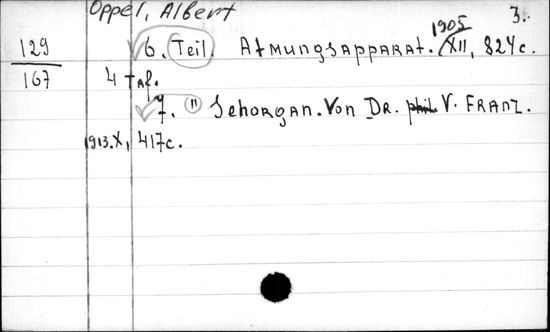 Oppel, Albert 3.
129
167
6. Teil. Atmungsapparat. 1905 /XII, 824c.
4 Taf.
7. " Sehorgan. Von Dr. phil. V. Franz.
1913. X, 417c.